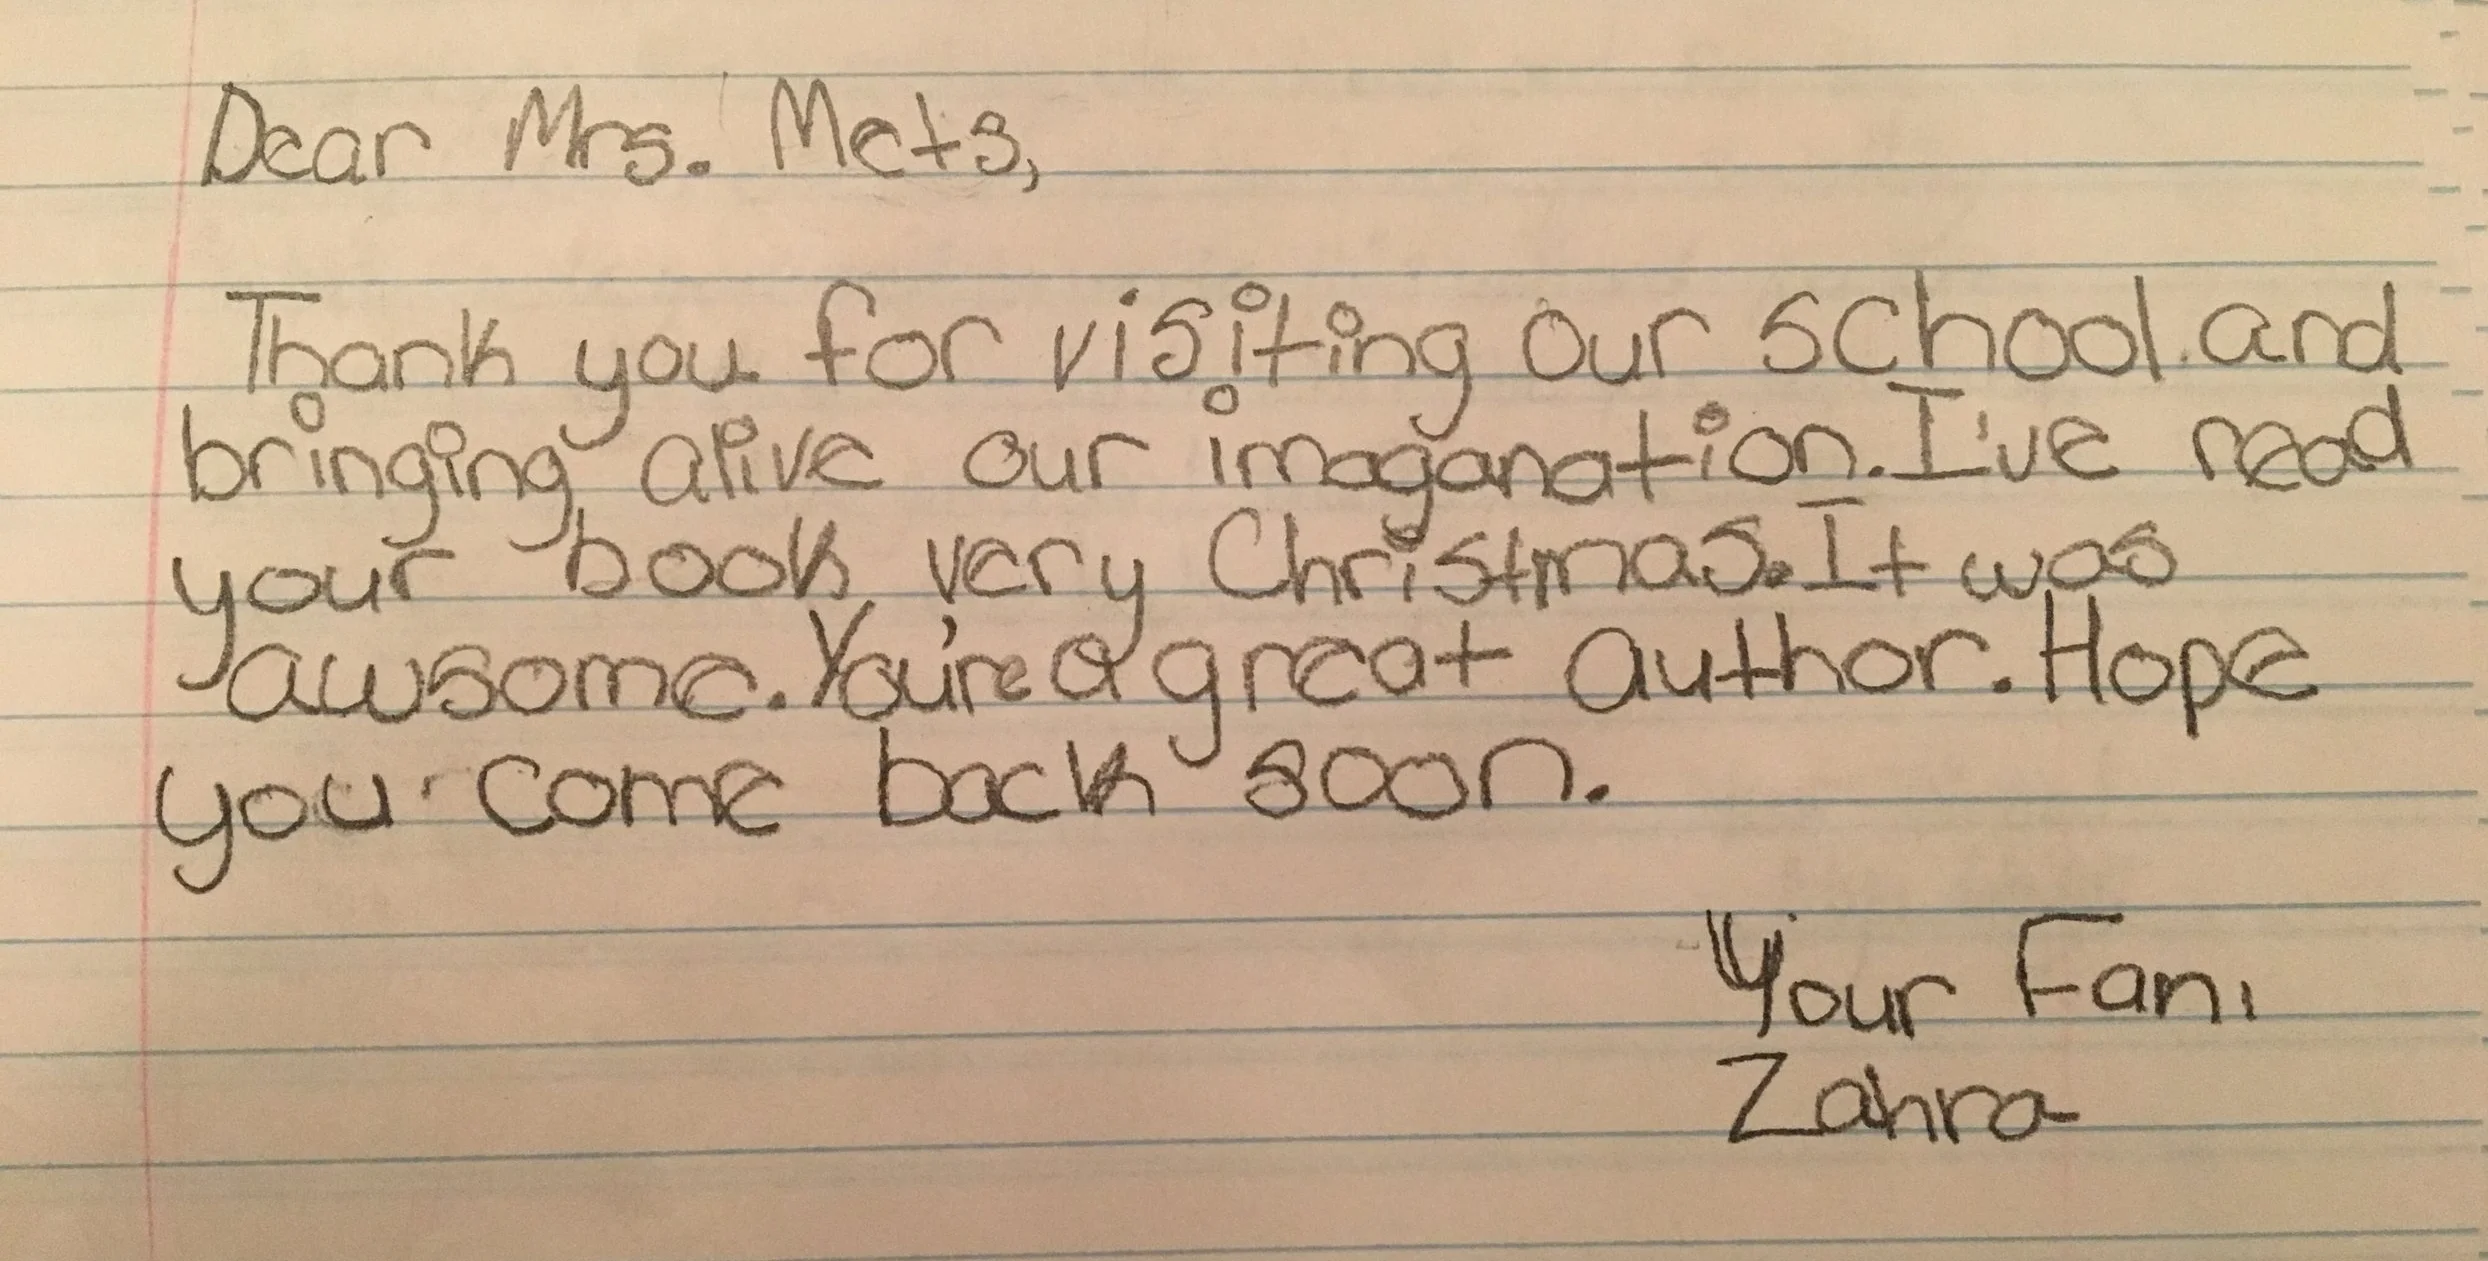 Dear Mrs. Mets,
Thank you for visiting our school and
bringing alive our imaganation. I've read
your book very Christmas. It was
awsome. You're a great author. Hope
you come back soon.
Your Fan,
Zahra